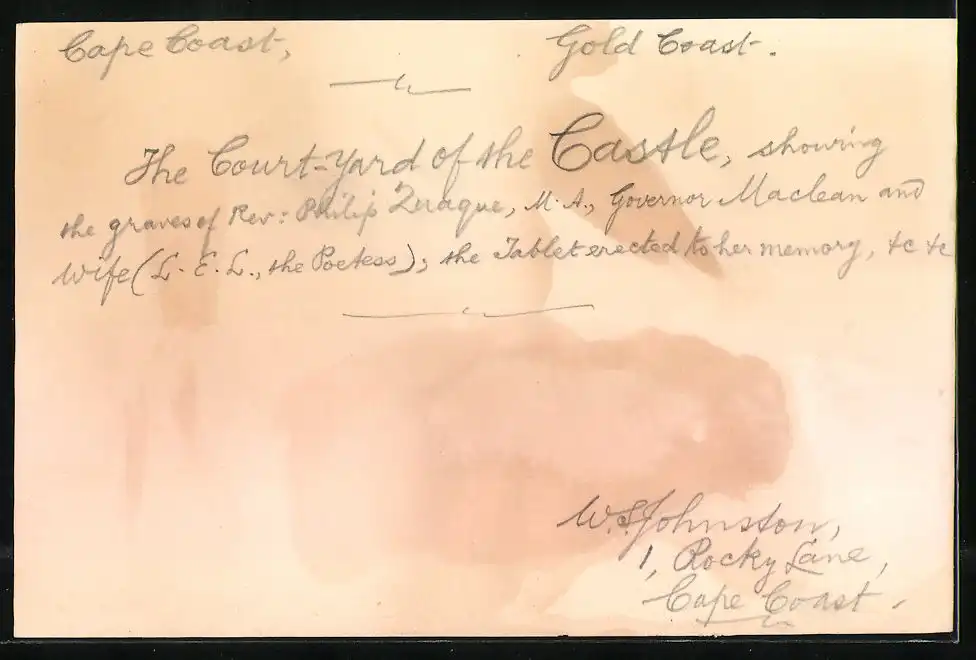 Cape Coast, Gold Coast.
The Court-Yard of the Castle, showing
the graves of Rev: Philip Quaque, M.A., Governor Maclean and
Wife (L. E. L., the Poetess); the Tablet erected to her memory, &c &c
W. S. Johnston,
1, Rocky Lane,
Cape Coast.